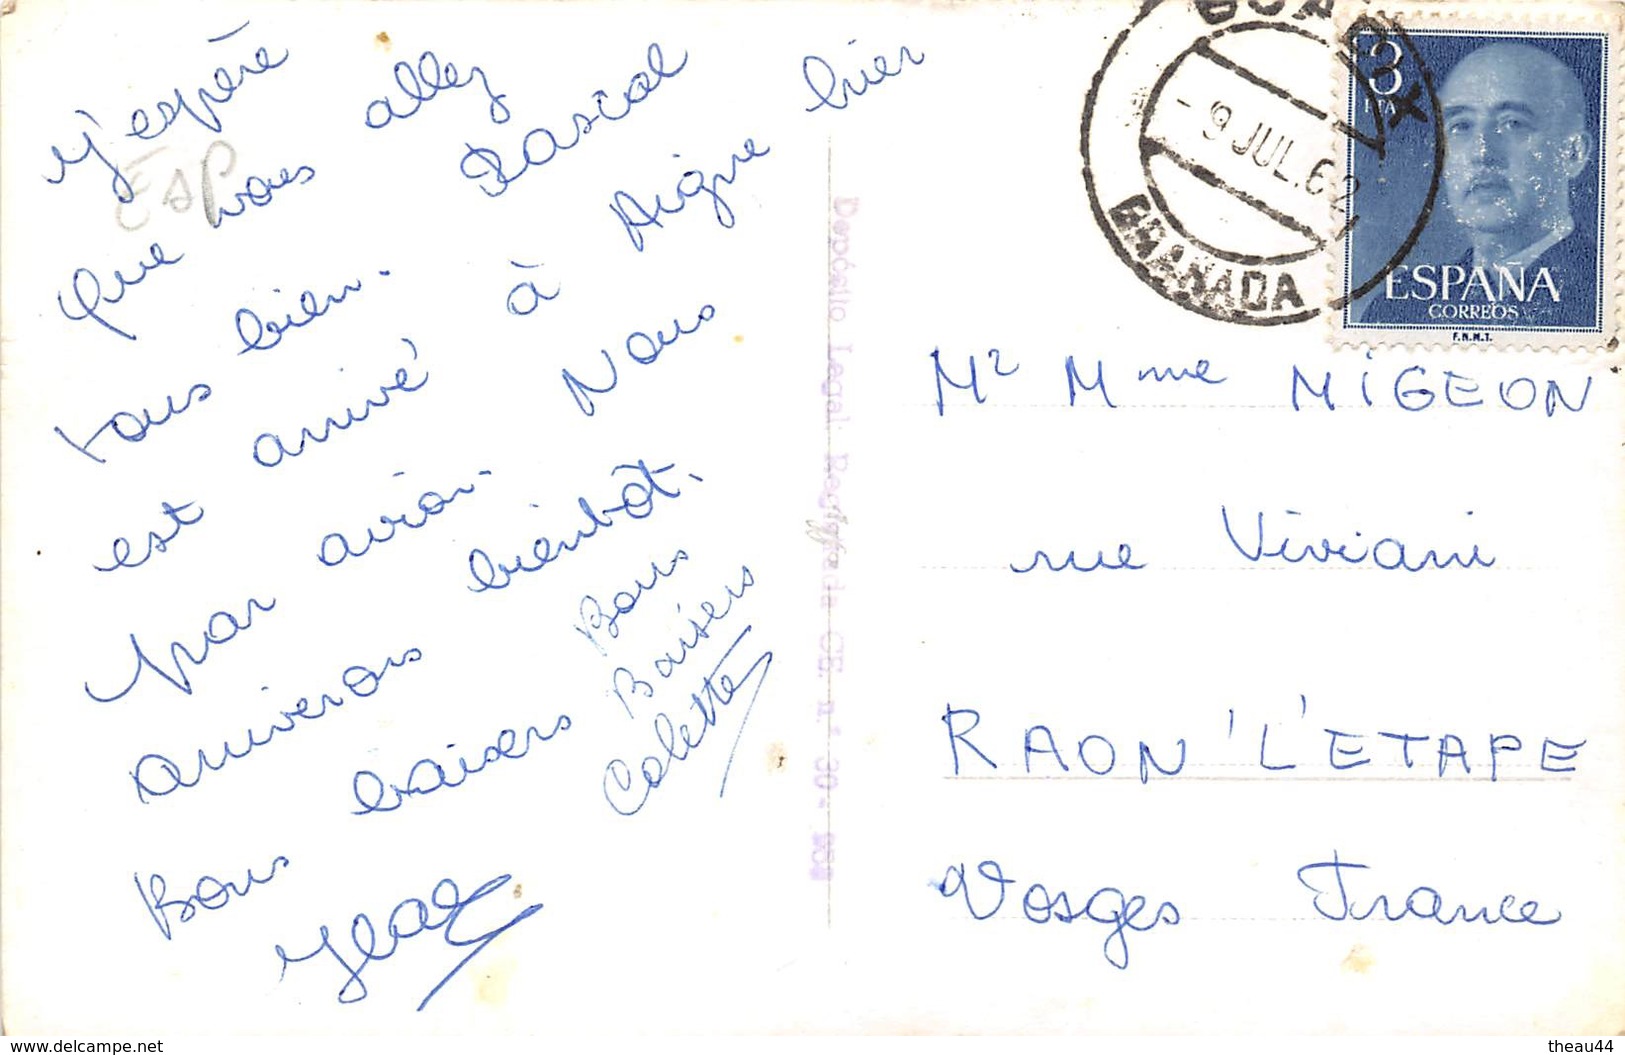 j'espère
que vous allez
tous bien. Pascal
est arrivé à Aigre hier
par avion. Nous
arriverons bientôt.
Bons baisers
Bons
Baisers
Colette
ESP
Deposito Legal
3
PTA
ESPAÑA
CORREOS
F.N.M.T.
- 9 JUL. 62 -
GRANADA
Mr Mme MIGEON
rue Viviani
RAON 'L'ETAPE
Vosges France
www.delcampe.net
theau44